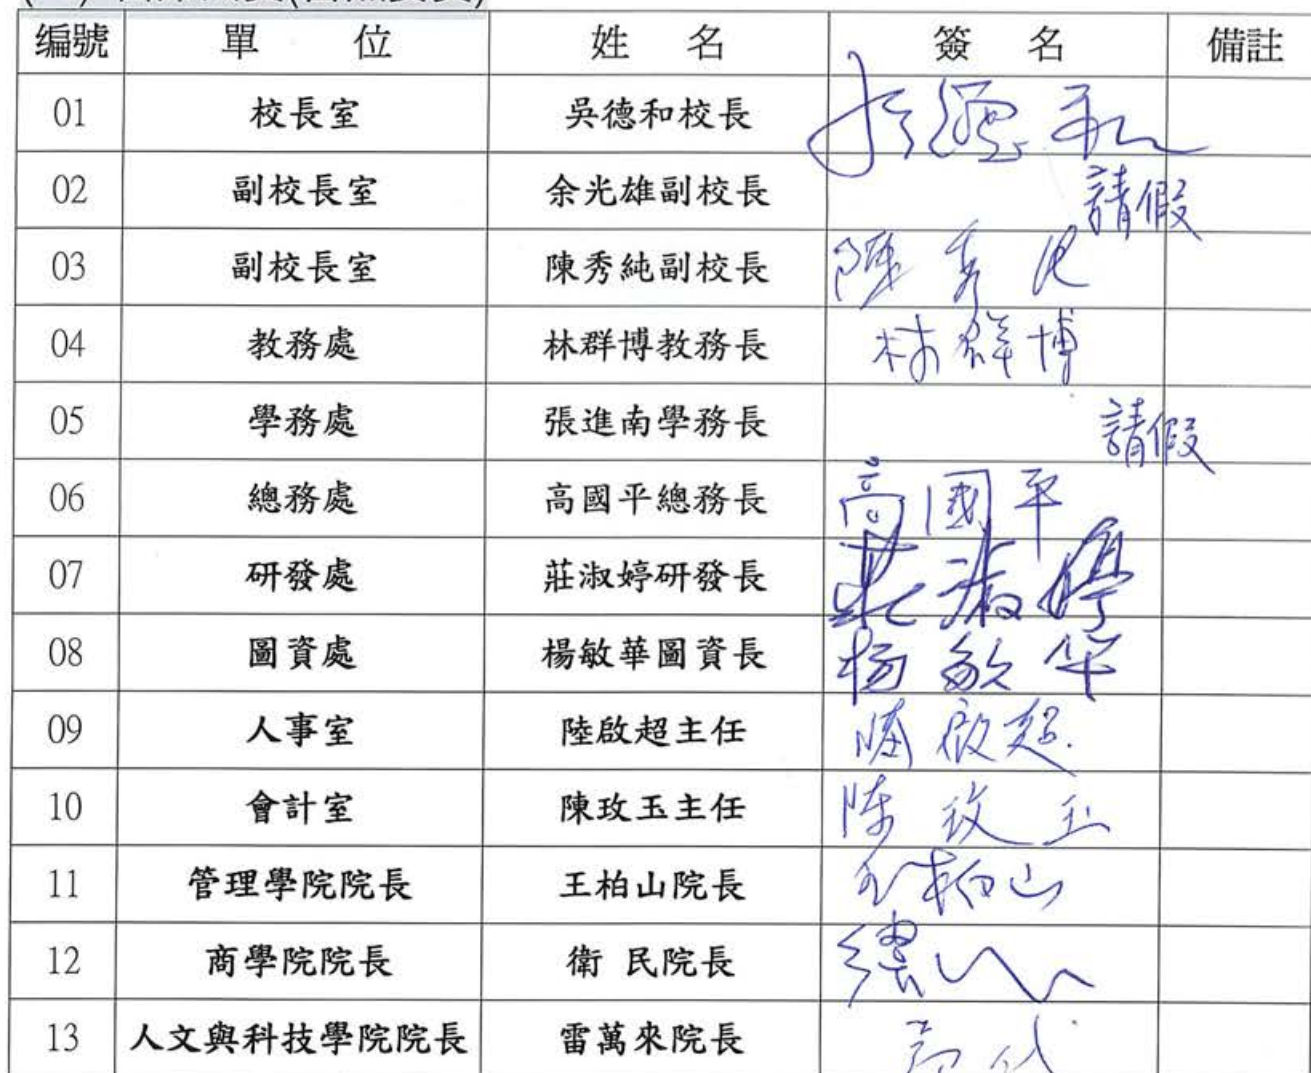 編號 單 位 姓 名 簽 名 備註
01 校長室 吳德和校長
02 副校長室 余光雄副校長 請假
03 副校長室 陳秀純副校長 陳秀
04 教務處 林群博教務長 林群博
05 學務處 張進南學務長 請假
06 總務處 高國平總務長 高國平
07 研發處 莊淑婷研發長 莊淑婷
08 圖資處 楊敏華圖資長 杨敏华
09 人事室 陸啟超主任 陸啟超
10 會計室 陳玫玉主任 陳玫玉
11 管理學院院長 王柏山院長 王柏山
12 商學院院長 衛 民院長
13 人文與科技學院院長 雷萬來院長